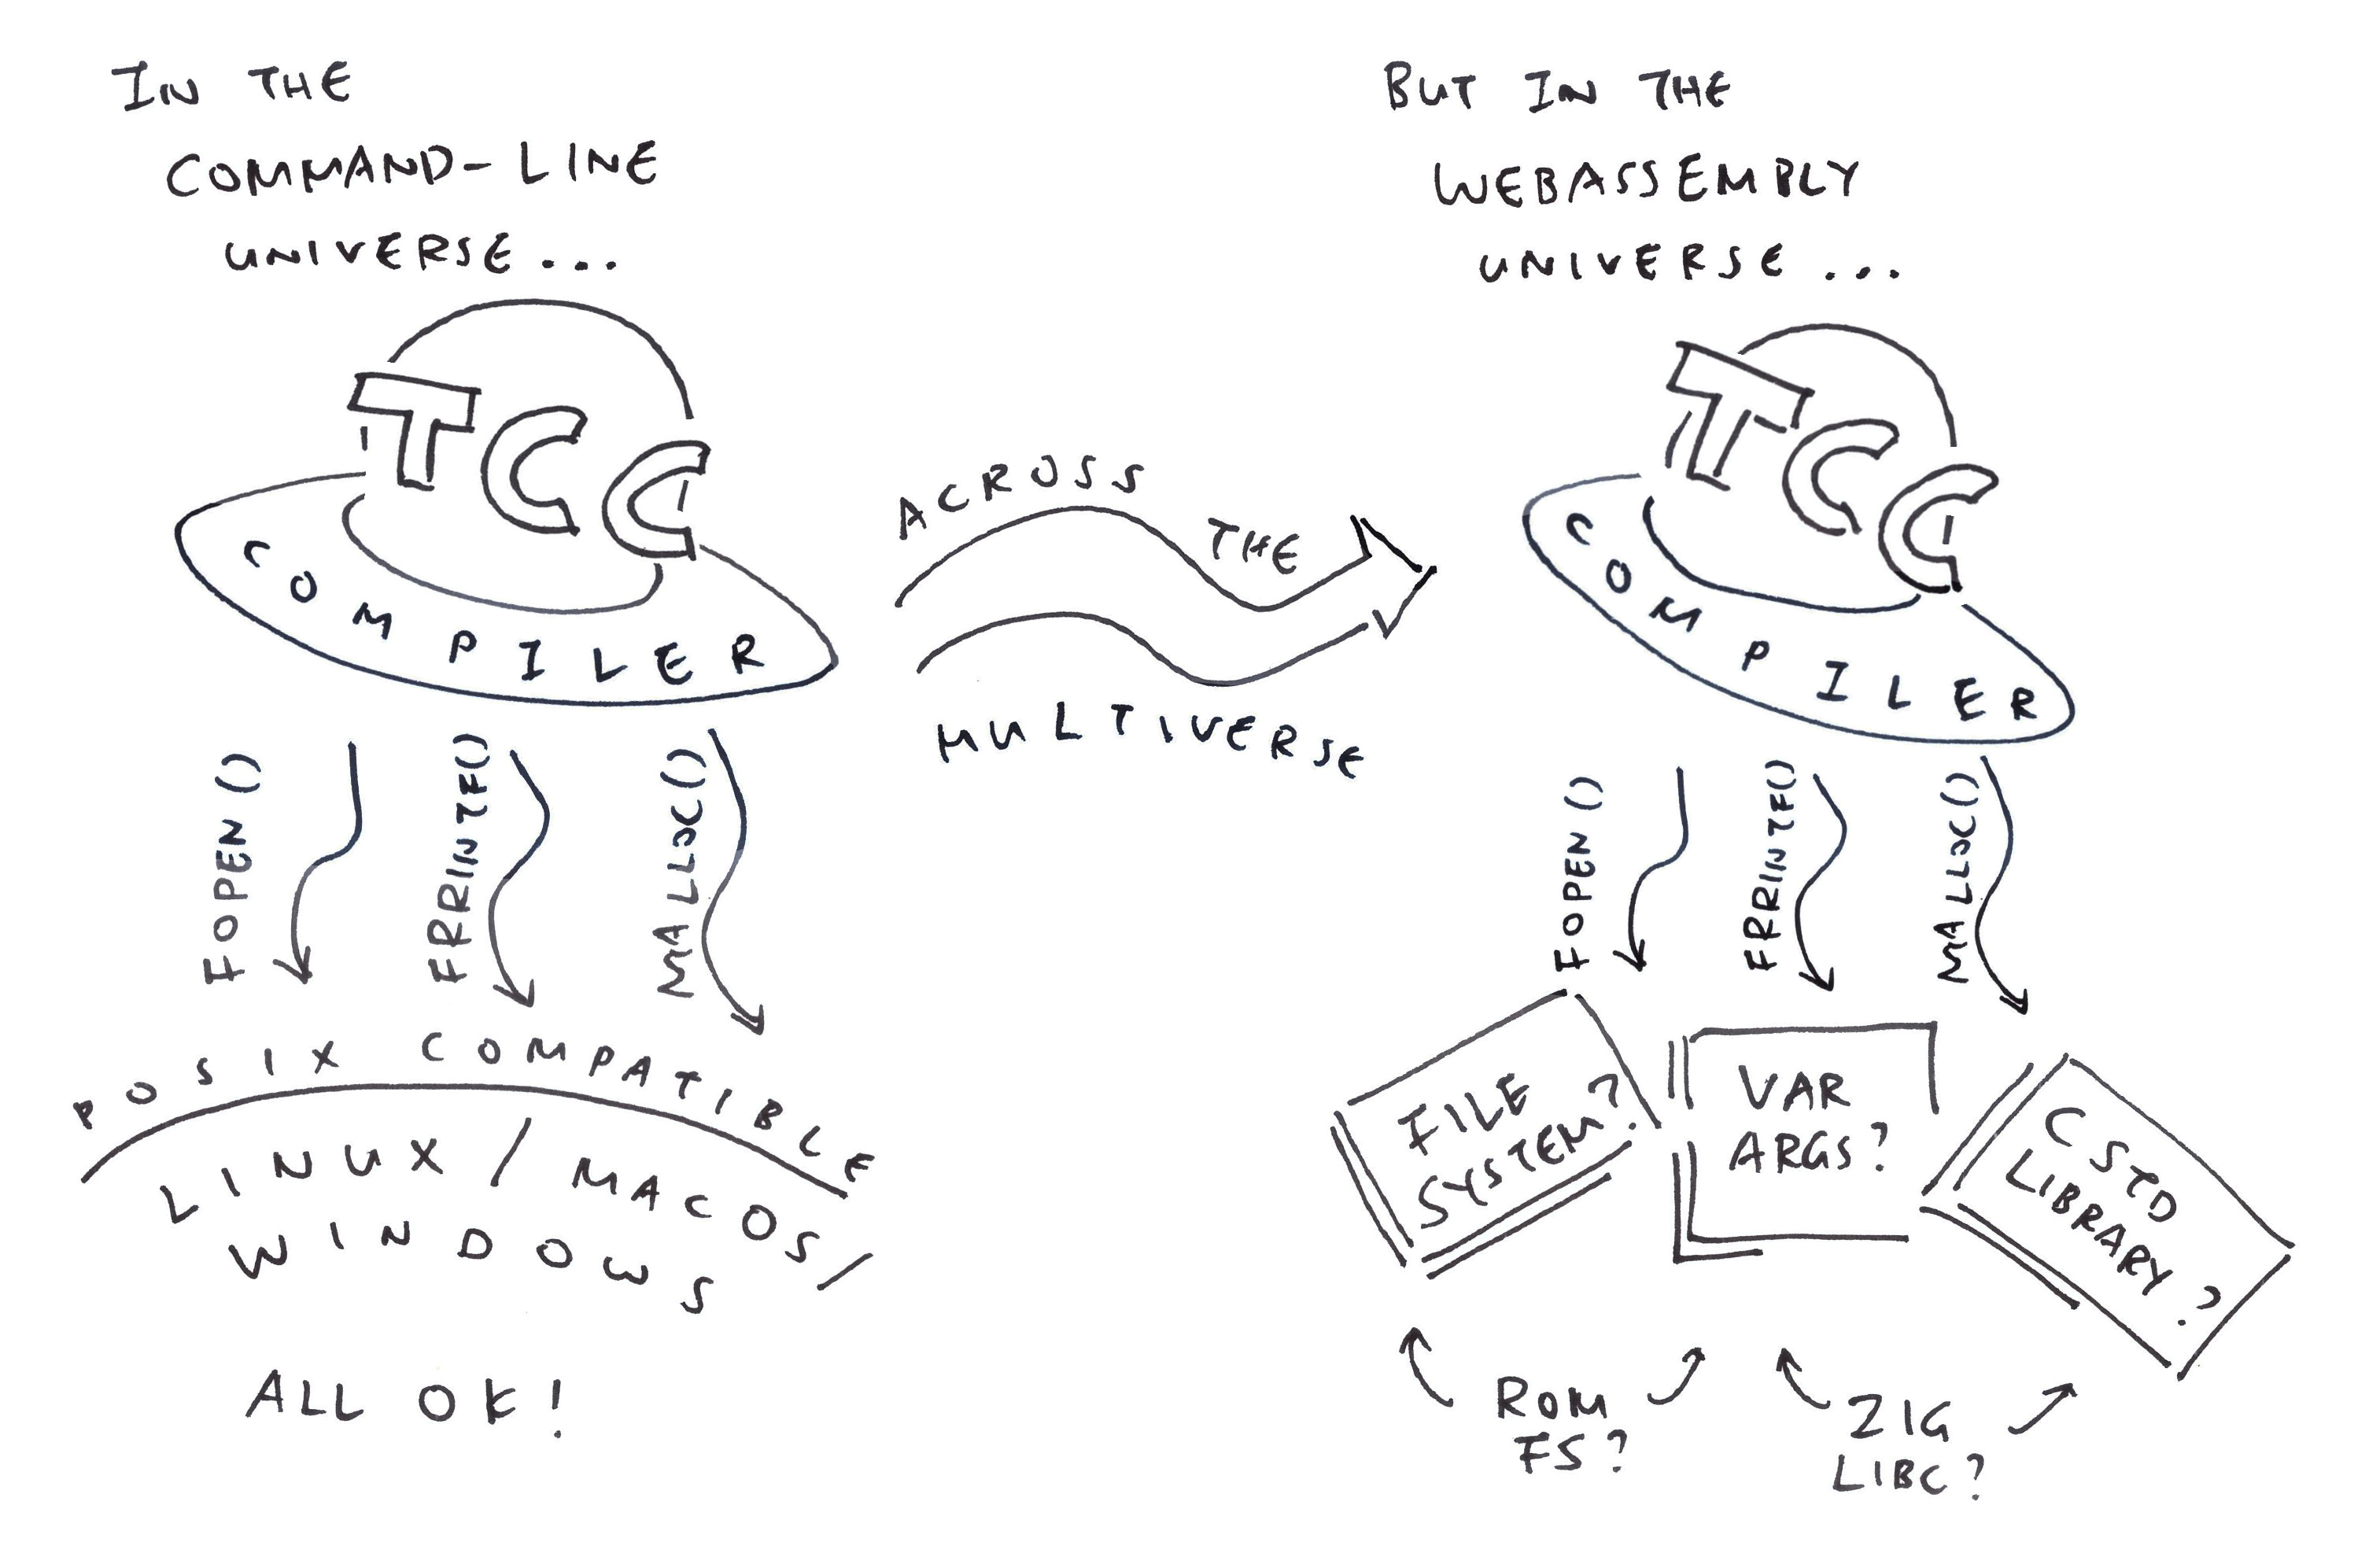 IN THE
COMMAND-LINE
UNIVERSE...
TCC
COMPILER
FOPEN()
FPRINTF()
MALLOC()
POSIX COMPATIBLE
LINUX / MACOS /
WINDOWS
ALL OK!
ACROSS THE
MULTIVERSE
BUT IN THE
WEBASSEMBLY
UNIVERSE...
TCC
COMPILER
FOPEN()
FPRINTF()
MALLOC()
FILE
SYSTEM?
VAR
ARGS?
C STD
LIBRARY?
ROM
FS?
ZIG
LIBC?